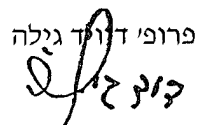 פרופ' דיויד גילה
דוד גילה